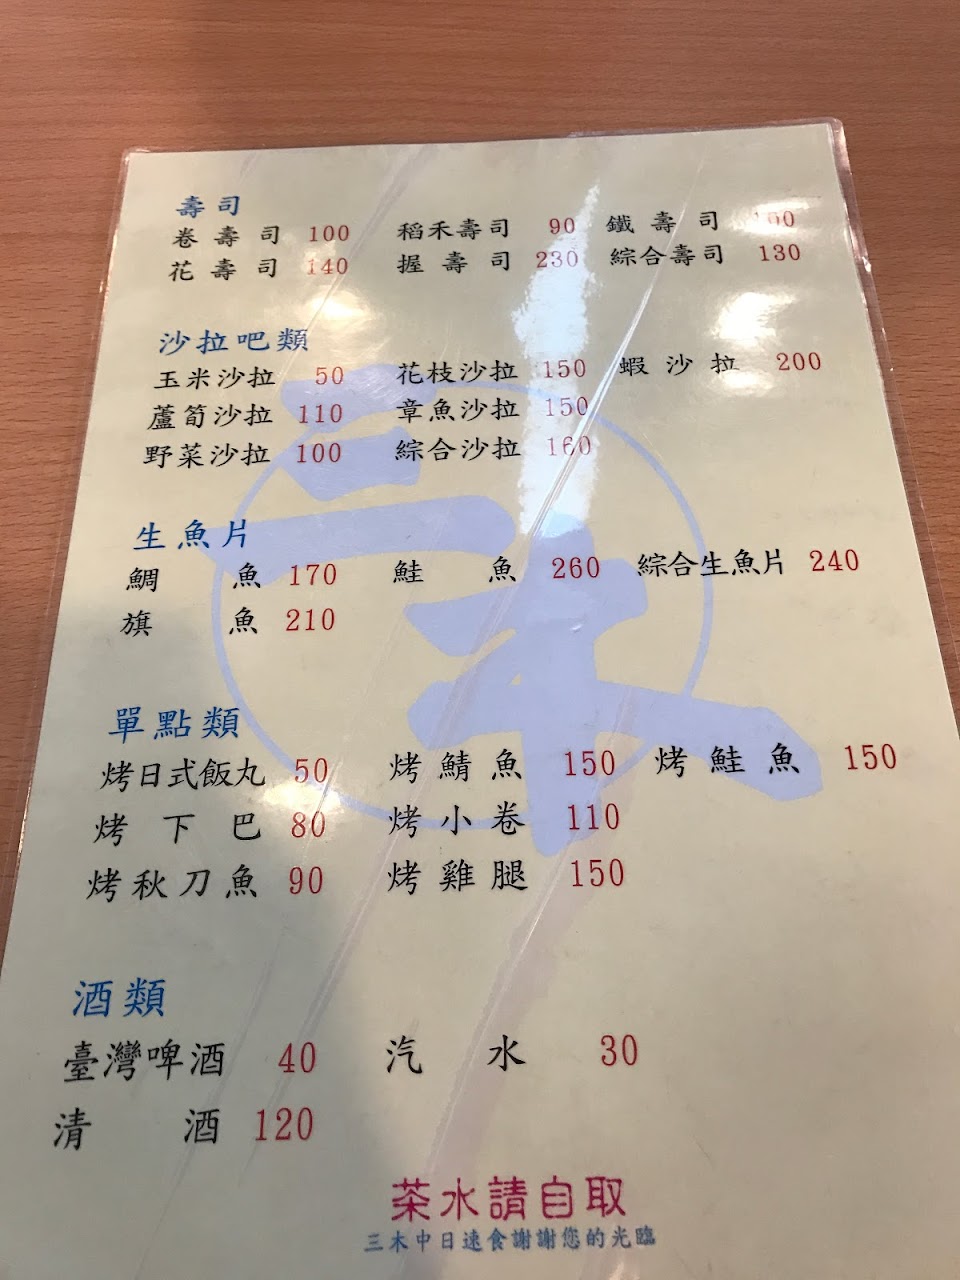 壽司
卷壽司 100 稻禾壽司 90 鐵壽司
花壽司 140 握壽司 230 綜合壽司 130
沙拉吧類
玉米沙拉 50 花枝沙拉 150 蝦沙拉 200
蘆筍沙拉 110 章魚沙拉 150
野菜沙拉 100 綜合沙拉 160
生魚片
鯛魚 170 鮭魚 260 綜合生魚片 240
旗魚 210
單點類
烤日式飯丸 50 烤鯖魚 150 烤鮭魚 150
烤下巴 80 烤小卷 110
烤秋刀魚 90 烤雞腿 150
三木
酒類
臺灣啤酒 40 汽水 30
清酒 120
茶水請自取
三木中日速食謝謝您的光臨